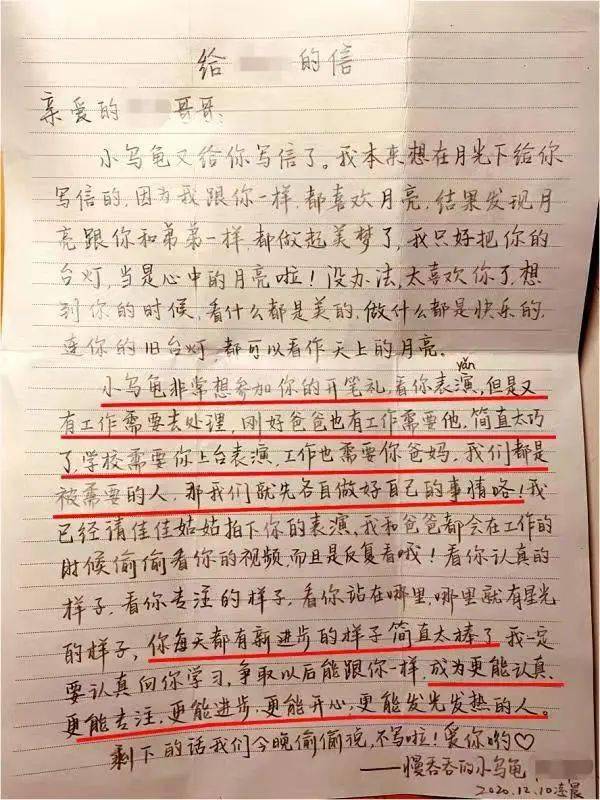 给 的信
亲爱的 哥哥:
小乌龟又给你写信了。我本来想在月光下给你
写信的,因为我跟你一样,都喜欢月亮,结果发现月
亮跟你和弟弟一样,都做起美梦了,我只好把你的
台灯,当是心中的月亮啦!没办法,太喜欢你了,想
到你的时候,看什么都是美的,做什么都是快乐的,
连你的旧台灯 都可以看作天上的月亮。
yǎn
小乌龟非常想参加你的开笔礼,看你表演,但是又
有工作需要去处理,刚好爸爸也有工作需要他,简直太巧
了,学校需要你上台表演,工作也需要你爸妈,我们都是
被需要的人,那我们就先各自做好自己的事情咯!我
已经请佳佳姑姑拍下你的表演,我和爸爸都会在工作的
时候偷偷看你的视频,而且是反复看哦!看你认真的
样子,看你专注的样子,看你站在哪里,哪里就有星光
的样子,你每天都有新进步的样子简直太棒了 我一定
要认真向你学习,争取以后能跟你一样,成为更能认真、
更能专注,更能进步,更能开心,更能发光发热的人。
剩下的话我们今晚偷偷说,不写啦!爱你哟♡
——慢吞吞的小乌龟
2020.12.10凌晨